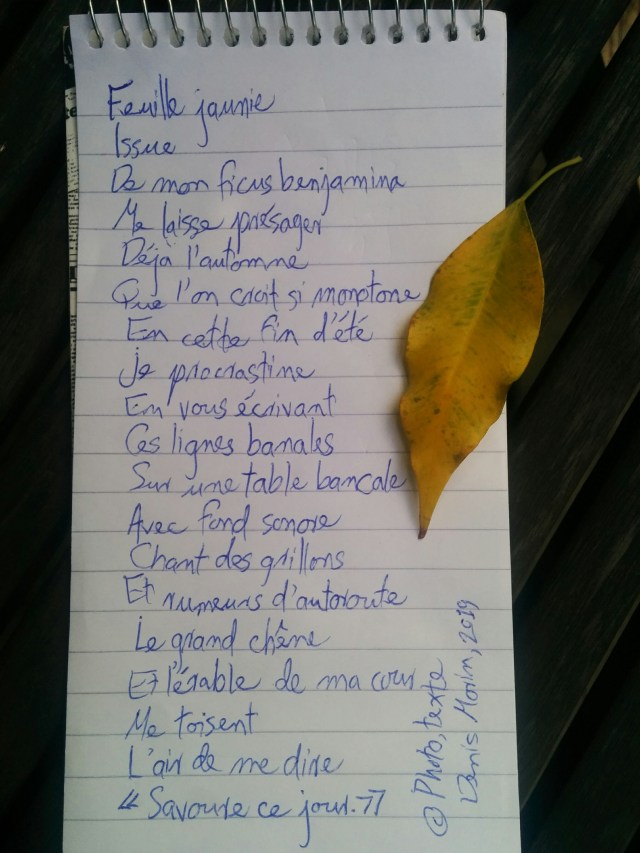 Feuille jaunie
Issue
De mon ficus benjamina
Me laisse présager
Déjà l'automne
Que l'on croit si monotone
En cette fin d'été
Je procrastine
En vous écrivant
Ces lignes banales
Sur une table bancale
Avec fond sonore
Chant des grillons
Et rumeurs d'autoroute
Le grand chêne
Et l'érable de ma cour
Me toisent
L'air de me dire
« Savoure ce jour. »
@ Photo, texte
Denis Morin, 2019